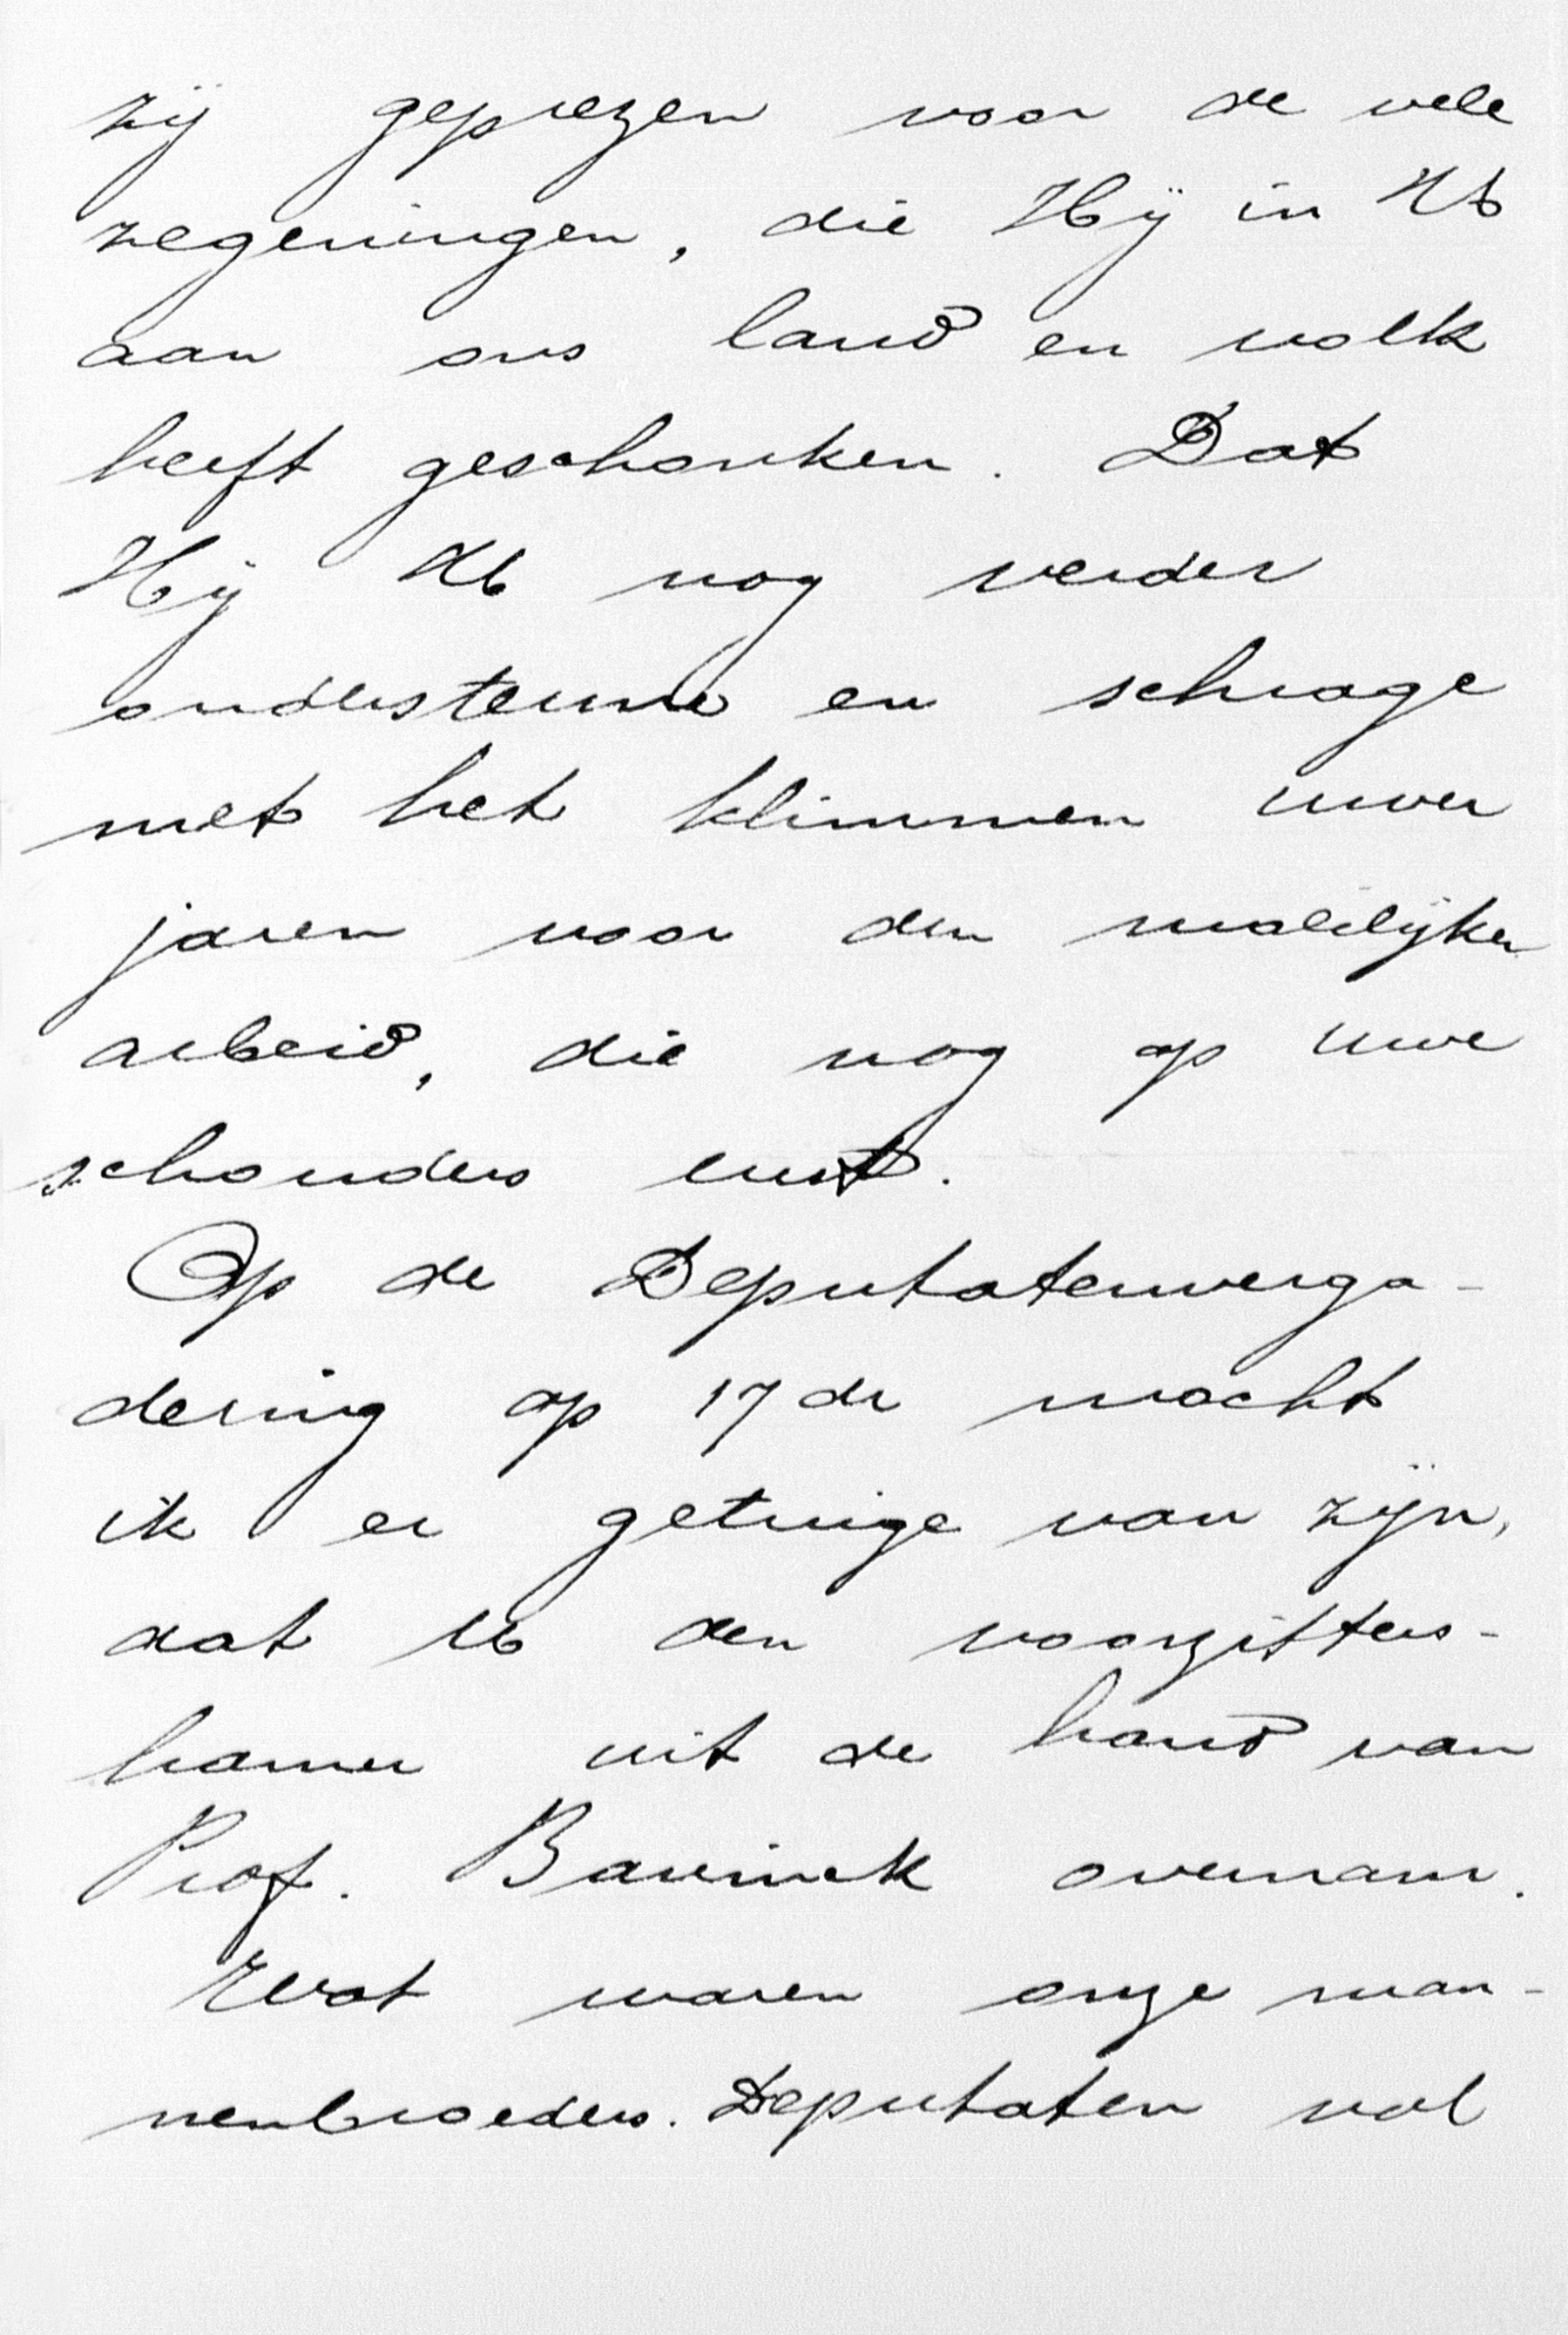 zij geprezen voor de vele
zegeningen, die Hij in U
aan ons land en volk
heeft geschonken. Dat
Hij U nog verder
ondersteune en schrage
met het klimmen uwer
jaren voor den moeilijken
arbeid, die nog op uwe
schouders rust.
Op de Deputatenverga-
dering op 17 dr mocht
ik er getuige van zijn,
dat U den voorzitters-
hamer uit de hand van
Prof. Bavinck overnam.
Wat waren onze man-
nenbroeders. Deputaten vol